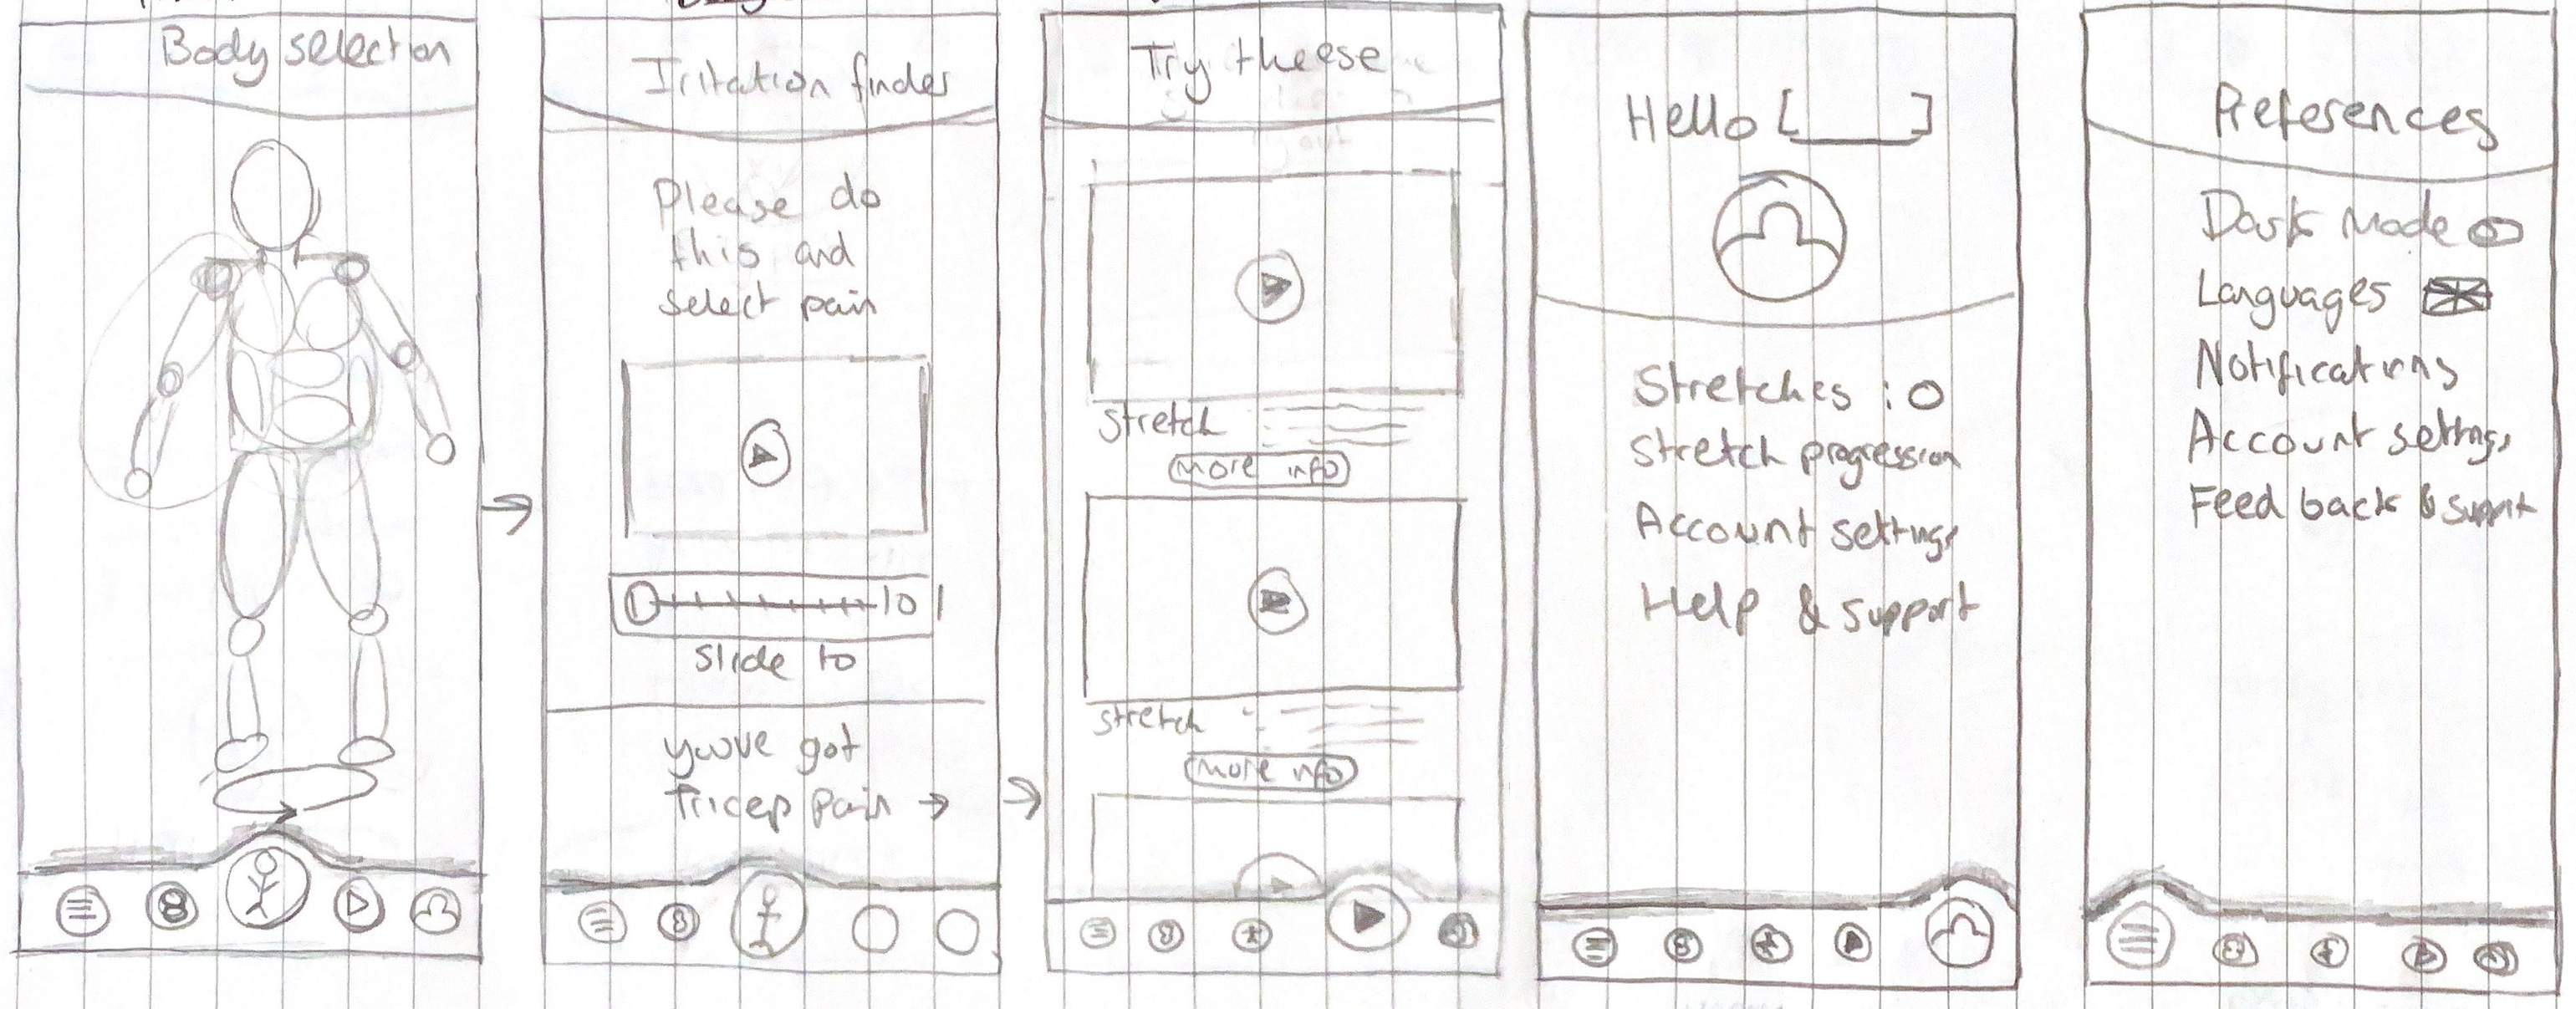 Body selection
Irritation finder
Please do
this and
select pain
10
slide to
youve got
Tricep pain →
Try theese
stretch
more info
stretch
more info
Hello [____]
Stretches : 0
Stretch progression
Account settings
Help & support
Preferences
Dark Mode
Languages
Notifications
Account settings
Feed back & support